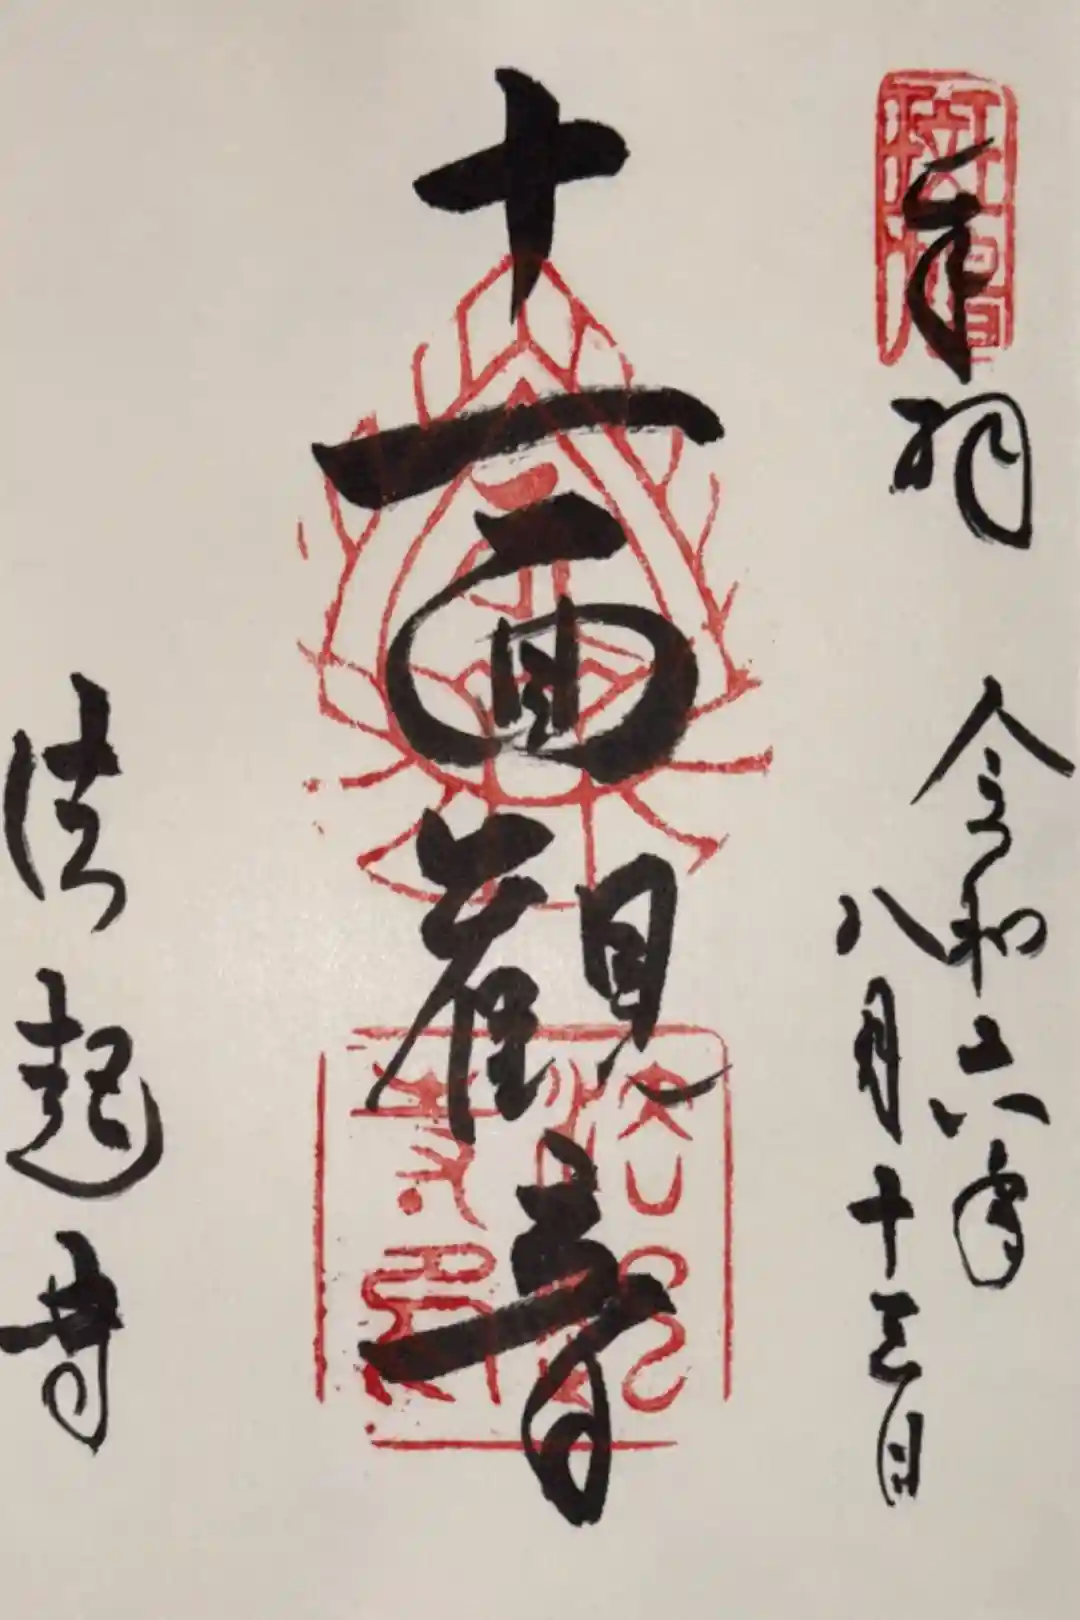 奉拝
令和六年
八月十三日
十一面觀音
法起寺